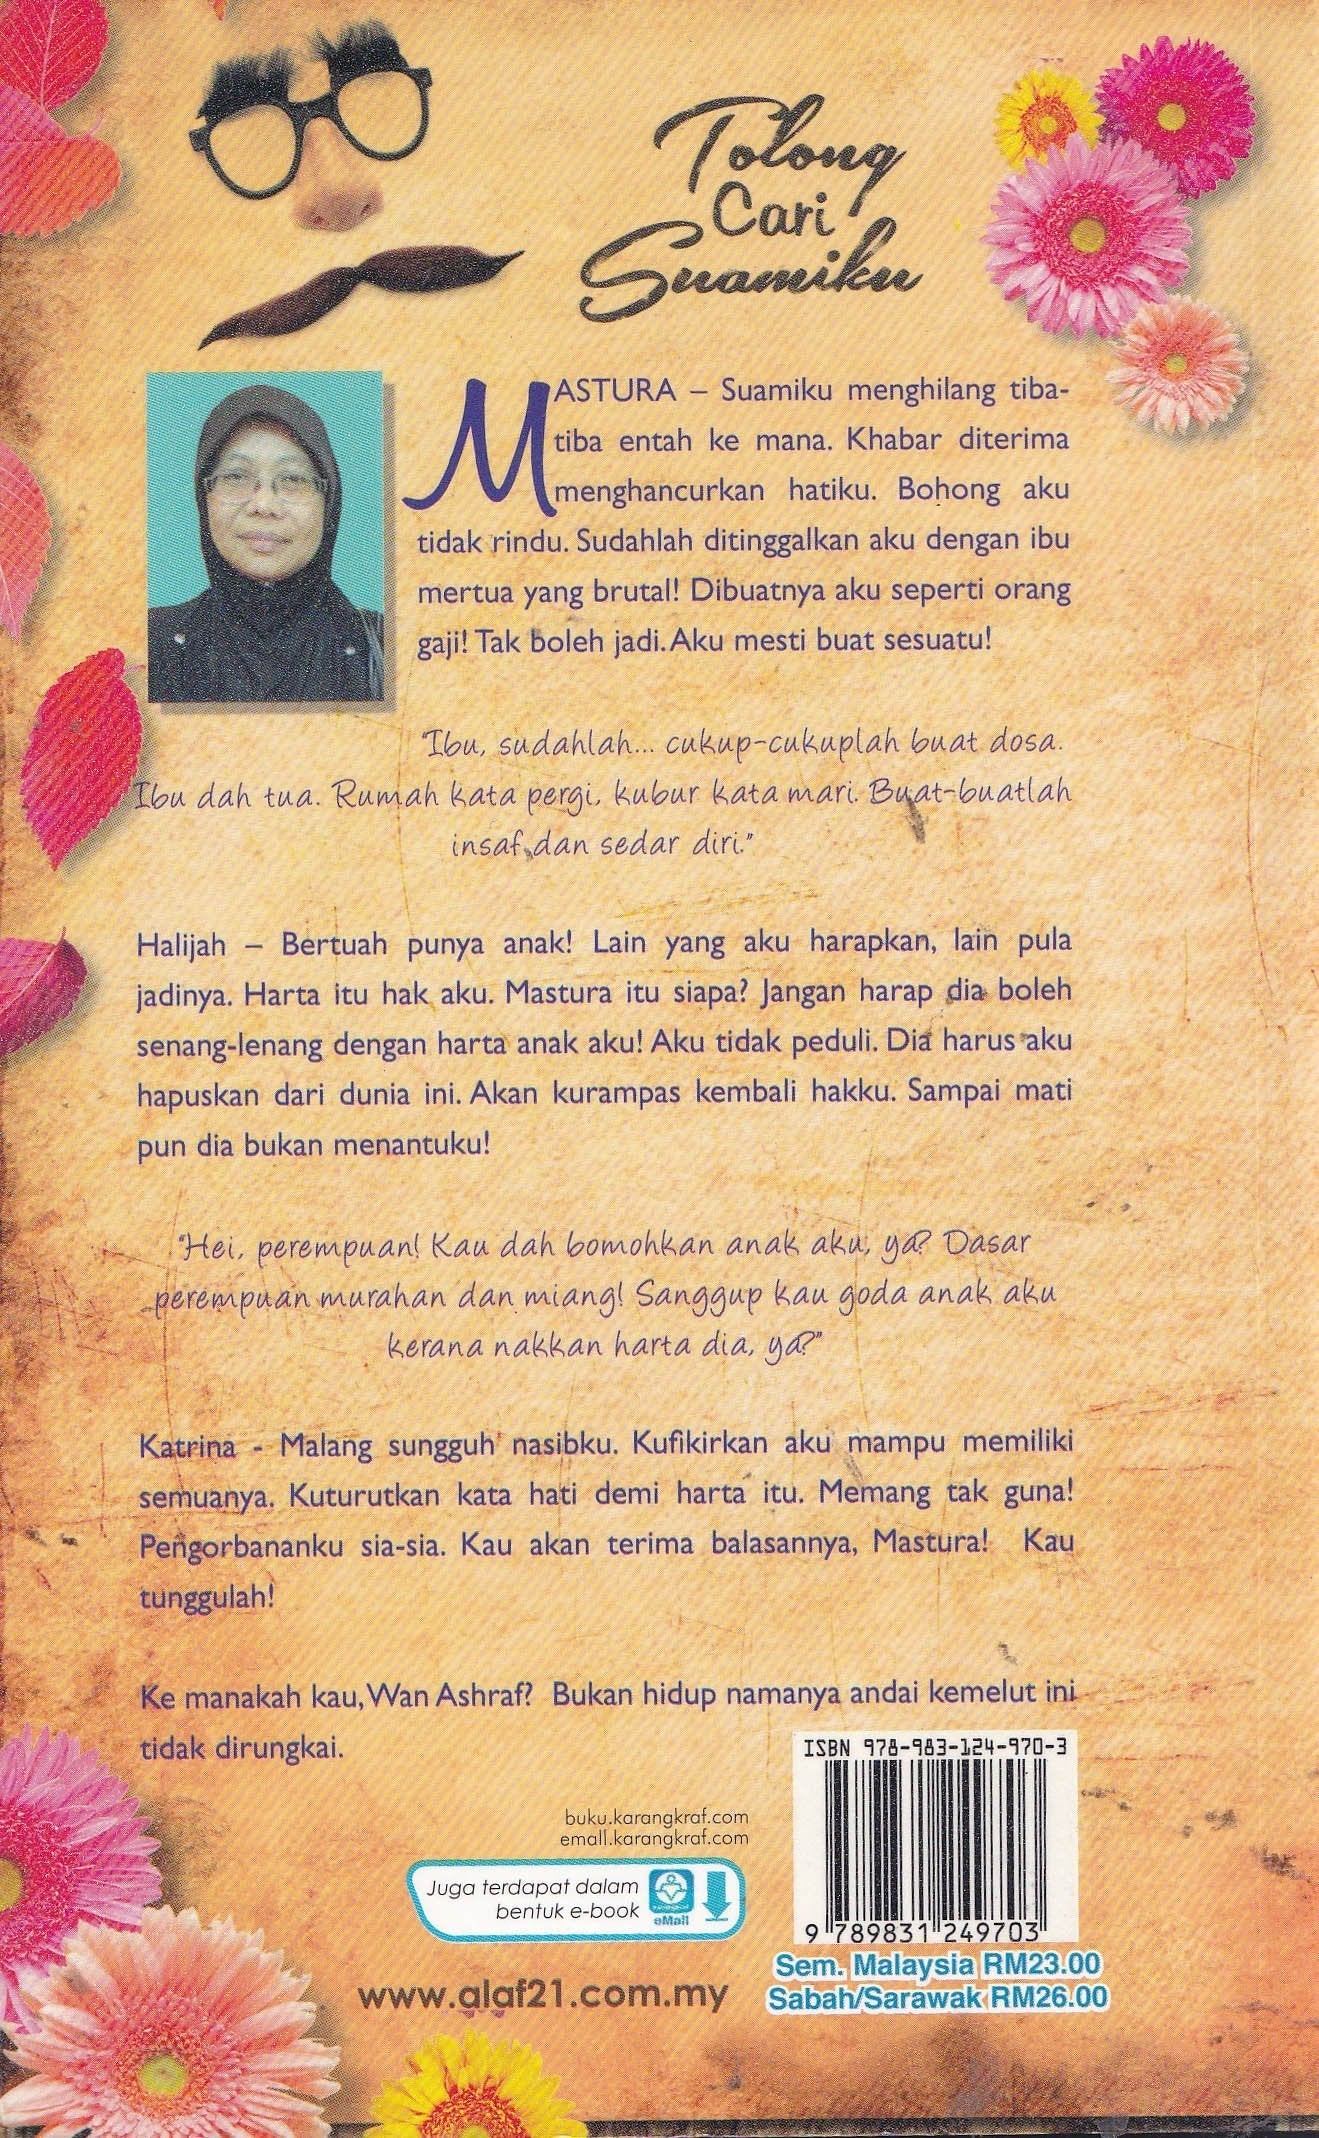 Tolong
Cari
Suamiku
MASTURA – Suamiku menghilang tiba-
tiba entah ke mana. Khabar diterima
menghancurkan hatiku. Bohong aku
tidak rindu. Sudahlah ditinggalkan aku dengan ibu
mertua yang brutal! Dibuatnya aku seperti orang
gaji! Tak boleh jadi. Aku mesti buat sesuatu!
"Ibu, sudahlah... cukup-cukuplah buat dosa.
Ibu dah tua. Rumah kata pergi, kubur kata mari. Buat-buatlah
insaf dan sedar diri."
Halijah – Bertuah punya anak! Lain yang aku harapkan, lain pula
jadinya. Harta itu hak aku. Mastura itu siapa? Jangan harap dia boleh
senang-lenang dengan harta anak aku! Aku tidak peduli. Dia harus aku
hapuskan dari dunia ini. Akan kurampas kembali hakku. Sampai mati
pun dia bukan menantuku!
"Hei, perempuan! Kau dah bomohkan anak aku, ya? Dasar
perempuan murahan dan miang! Sanggup kau goda anak aku
kerana nakkan harta dia, ya?"
Katrina - Malang sungguh nasibku. Kufikirkan aku mampu memiliki
semuanya. Kuturutkan kata hati demi harta itu. Memang tak guna!
Pengorbananku sia-sia. Kau akan terima balasannya, Mastura! Kau
tunggulah!
Ke manakah kau, Wan Ashraf? Bukan hidup namanya andai kemelut ini
tidak dirungkai.
ISBN 978-983-124-970-3
buku.karangkraf.com
emall.karangkraf.com
Juga terdapat dalam
bentuk e-book
eMall
9 789831 249703
Sem. Malaysia RM23.00
Sabah/Sarawak RM26.00
www.alaf21.com.my